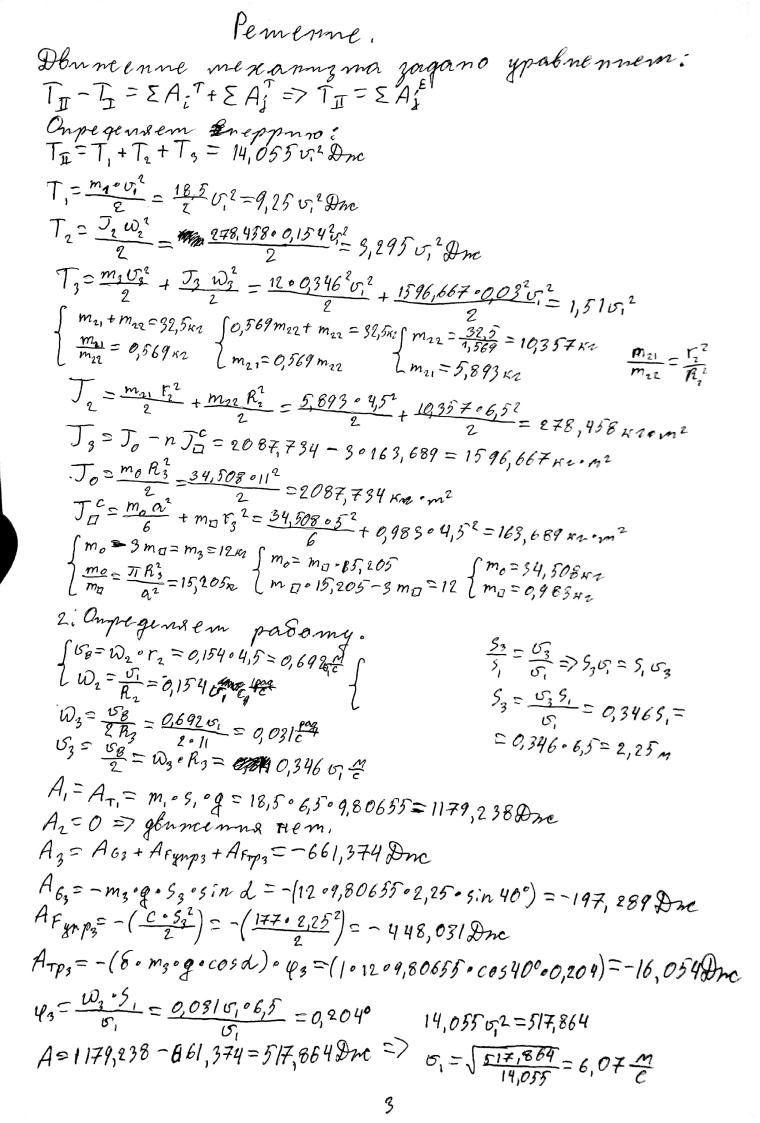 Решение.
Движение механизма задано уравнением:
T_II − T_I = ΣA_i^T + ΣA_j^T => T_II = ΣA_j^E
Определяем энергию:
T_II = T₁ + T₂ + T₃ = 14,055 υ₁² Дж
T₁ = m₁•υ₁²/2 = 18,5/2 υ₁² = 9,25 υ₁² Дж
T₂ = J₂ω₂²/2 = 278,458•0,154²υ₁²/2 = 3,295 υ₁² Дж
T₃ = m₃υ₃²/2 + J₃ω₃²/2 = 12•0,346²υ₁²/2 + 1596,667•0,03²υ₁²/2 = 1,51υ₁²
{ m₂₁ + m₂₂ = 32,5кг { 0,569m₂₂ + m₂₂ = 32,5кг { m₂₂ = 32,5/1,569 = 10,357кг
m₂₁/m₂₂ = 0,569кг m₂₁ = 0,569m₂₂ m₂₁ = 5,893кг m₂₁/m₂₂ = r₂²/R₂²
J₂ = m₂₁r₂²/2 + m₂₂R₂²/2 = 5,893•4,5²/2 + 10,357•6,5²/2 = 278,458 кг•м²
J₃ = J₀ − nJ□^c = 2087,734 − 3•163,689 = 1596,667 кг•м²
J₀ = m₀R₃²/2 = 34,508•11²/2 = 2087,734 кг•м²
J□^c = m₀a²/6 + m□r₃² = 34,508•5²/6 + 0,983•4,5² = 163,689 кг•м²
{ m₀ − 3m□ = m₃ = 12кг { m₀ = m□•15,205 { m₀ = 34,508кг
m₀/m□ = πR₃²/a² = 15,205кг m□•15,205 − 3m□ = 12 m□ = 0,983кг
2. Определяем работу.
{ υ_B = ω₂•r₂ = 0,154•4,5 = 0,692 м/с { S₃/S₁ = υ₃/υ₁ => S₃υ₁ = S₁υ₃
ω₂ = υ₁/R₂ = 0,154υ₁ рад/с
ω₃ = υ_B/2R₃ = 0,692υ₁/2•11 = 0,031 рад/с S₃ = υ₃S₁/υ₁ = 0,346S₁ =
υ₃ = υ_B/2 = ω₃•R₃ = 0,346 υ₁ м/с = 0,346•6,5 = 2,25м
A₁ = A_T₁ = m₁•s₁•g = 18,5•6,5•9,80655 = 1179,238Дж
A₂ = 0 => движения нет.
A₃ = A_G₃ + A_Fупр₃ + A_Fтр₃ = −661,374Дж
A_G₃ = −m₃•g•S₃•sin α = −(12•9,80655•2,25•sin 40°) = −197,289Дж
A_Fупр₃ = −(c•S₃²/2) = −(177•2,25²/2) = −448,031Дж
A_тр₃ = −(δ•m₃•g•cosα)•φ₃ = (1•12•9,80655•cos40°•0,204) = −16,054Дж
φ₃ = ω₃•S₁/υ₁ = 0,031υ₁•6,5/υ₁ = 0,204° 14,055υ₁2 = 517,864
A = 1179,238 − 661,374 = 517,864Дж => υ₁ = √517,864/14,055 = 6,07 м/с
3